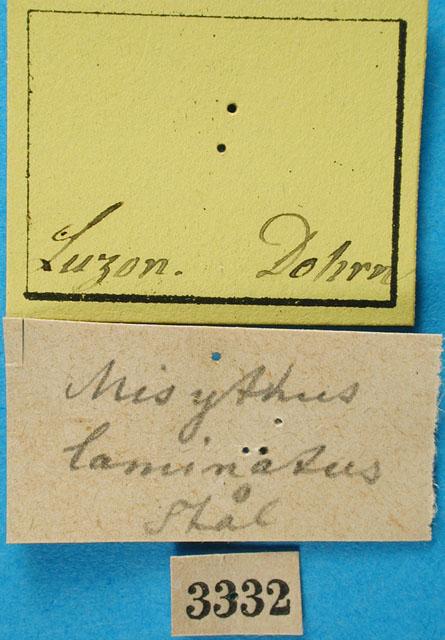 Luzon. Dohrn
Misythus
laminatus
Stål
3332